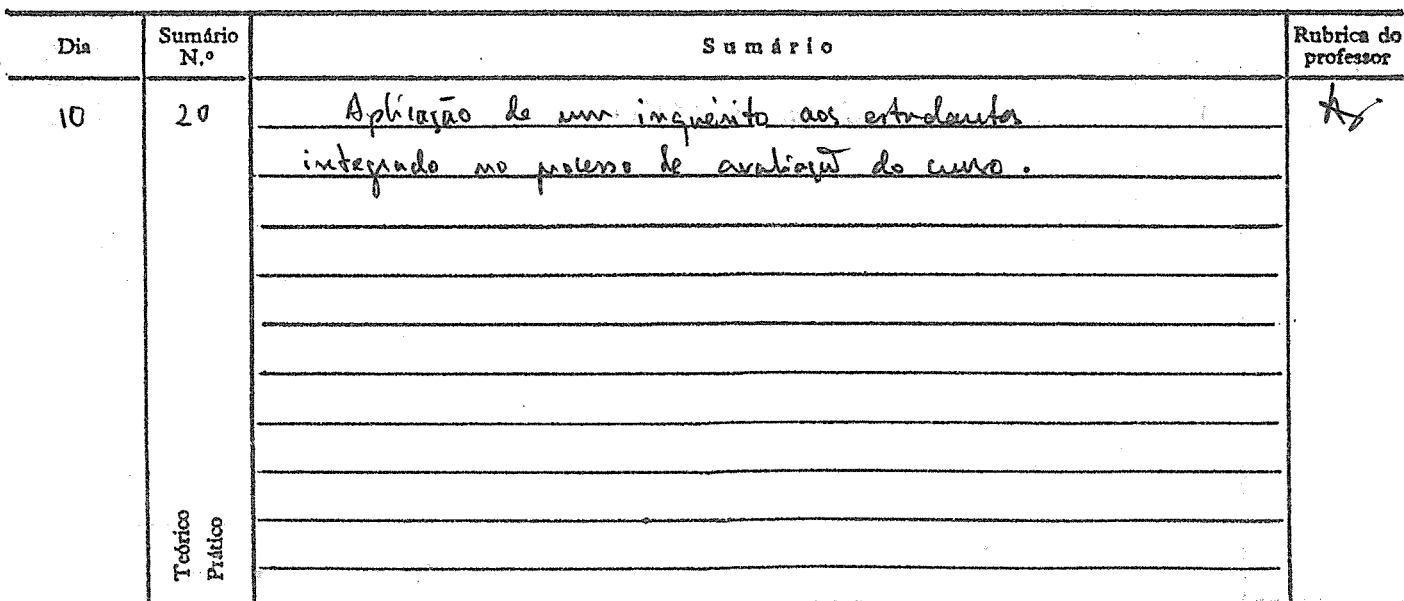 Dia Sumário N.º Sumário Rubrica do professor
10 20 Aplicação de um inquérito aos estudantes
integrado no processo de avaliação do curso.
Teórico
Prático